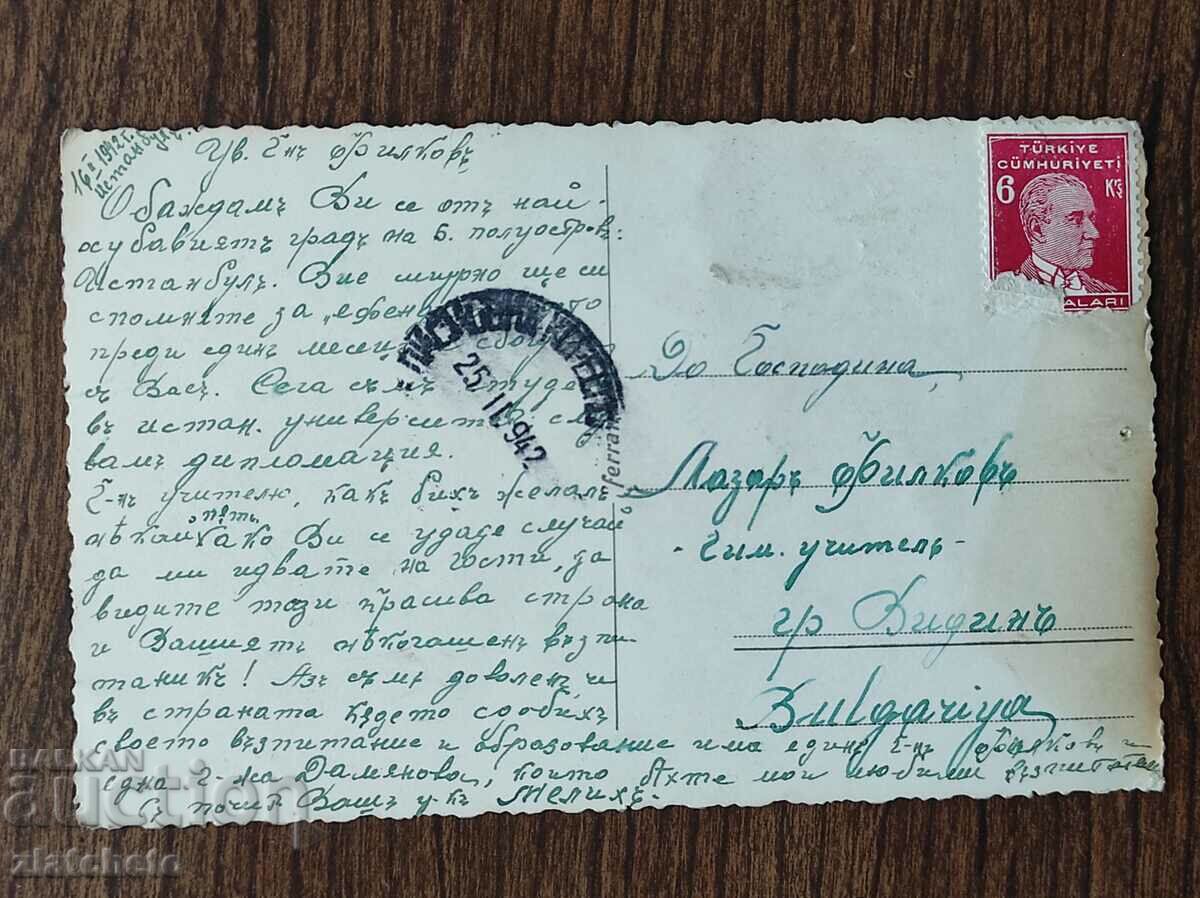 16 II 1942 г.
Истанбулъ.
Ув. Г-нъ Филковъ
Обаждамъ Ви се отъ най-
хубавиятъ градъ на Б. полуостровъ:
Истанбулъ. Вие мирно ще си
спомняте за
преди единъ месецъ
съ Васъ. Сега съмъ
въ истан. университетъ
вамъ дипломация.
Г-нъ учителю, какъ бихъ желалъ
нѣкой пѫть како Ви се удаде случай
да ми идвате на гости, да
видите тази красива страна
и Вашиятъ нѣкогашенъ възпи-
таникъ! Азъ съмъ доволенъ, че
въ страната кѫдето добихъ
своето възпитание и образование има единъ г-нъ Филковъ и
една г-жа Дамянова, които бѣхте мои любими възпитатели
Съ почит Вашъ у-къ Мелихъ.
TÜRKİYE
CÜMHURİYETİ
6 Krş
ALARI
25 II 942
ferrania
До Господина,
Лазаръ Филковъ
- Гим. учитель -
гр Видинъ
Bulgariya
BALKAN
auction
zlatcheto